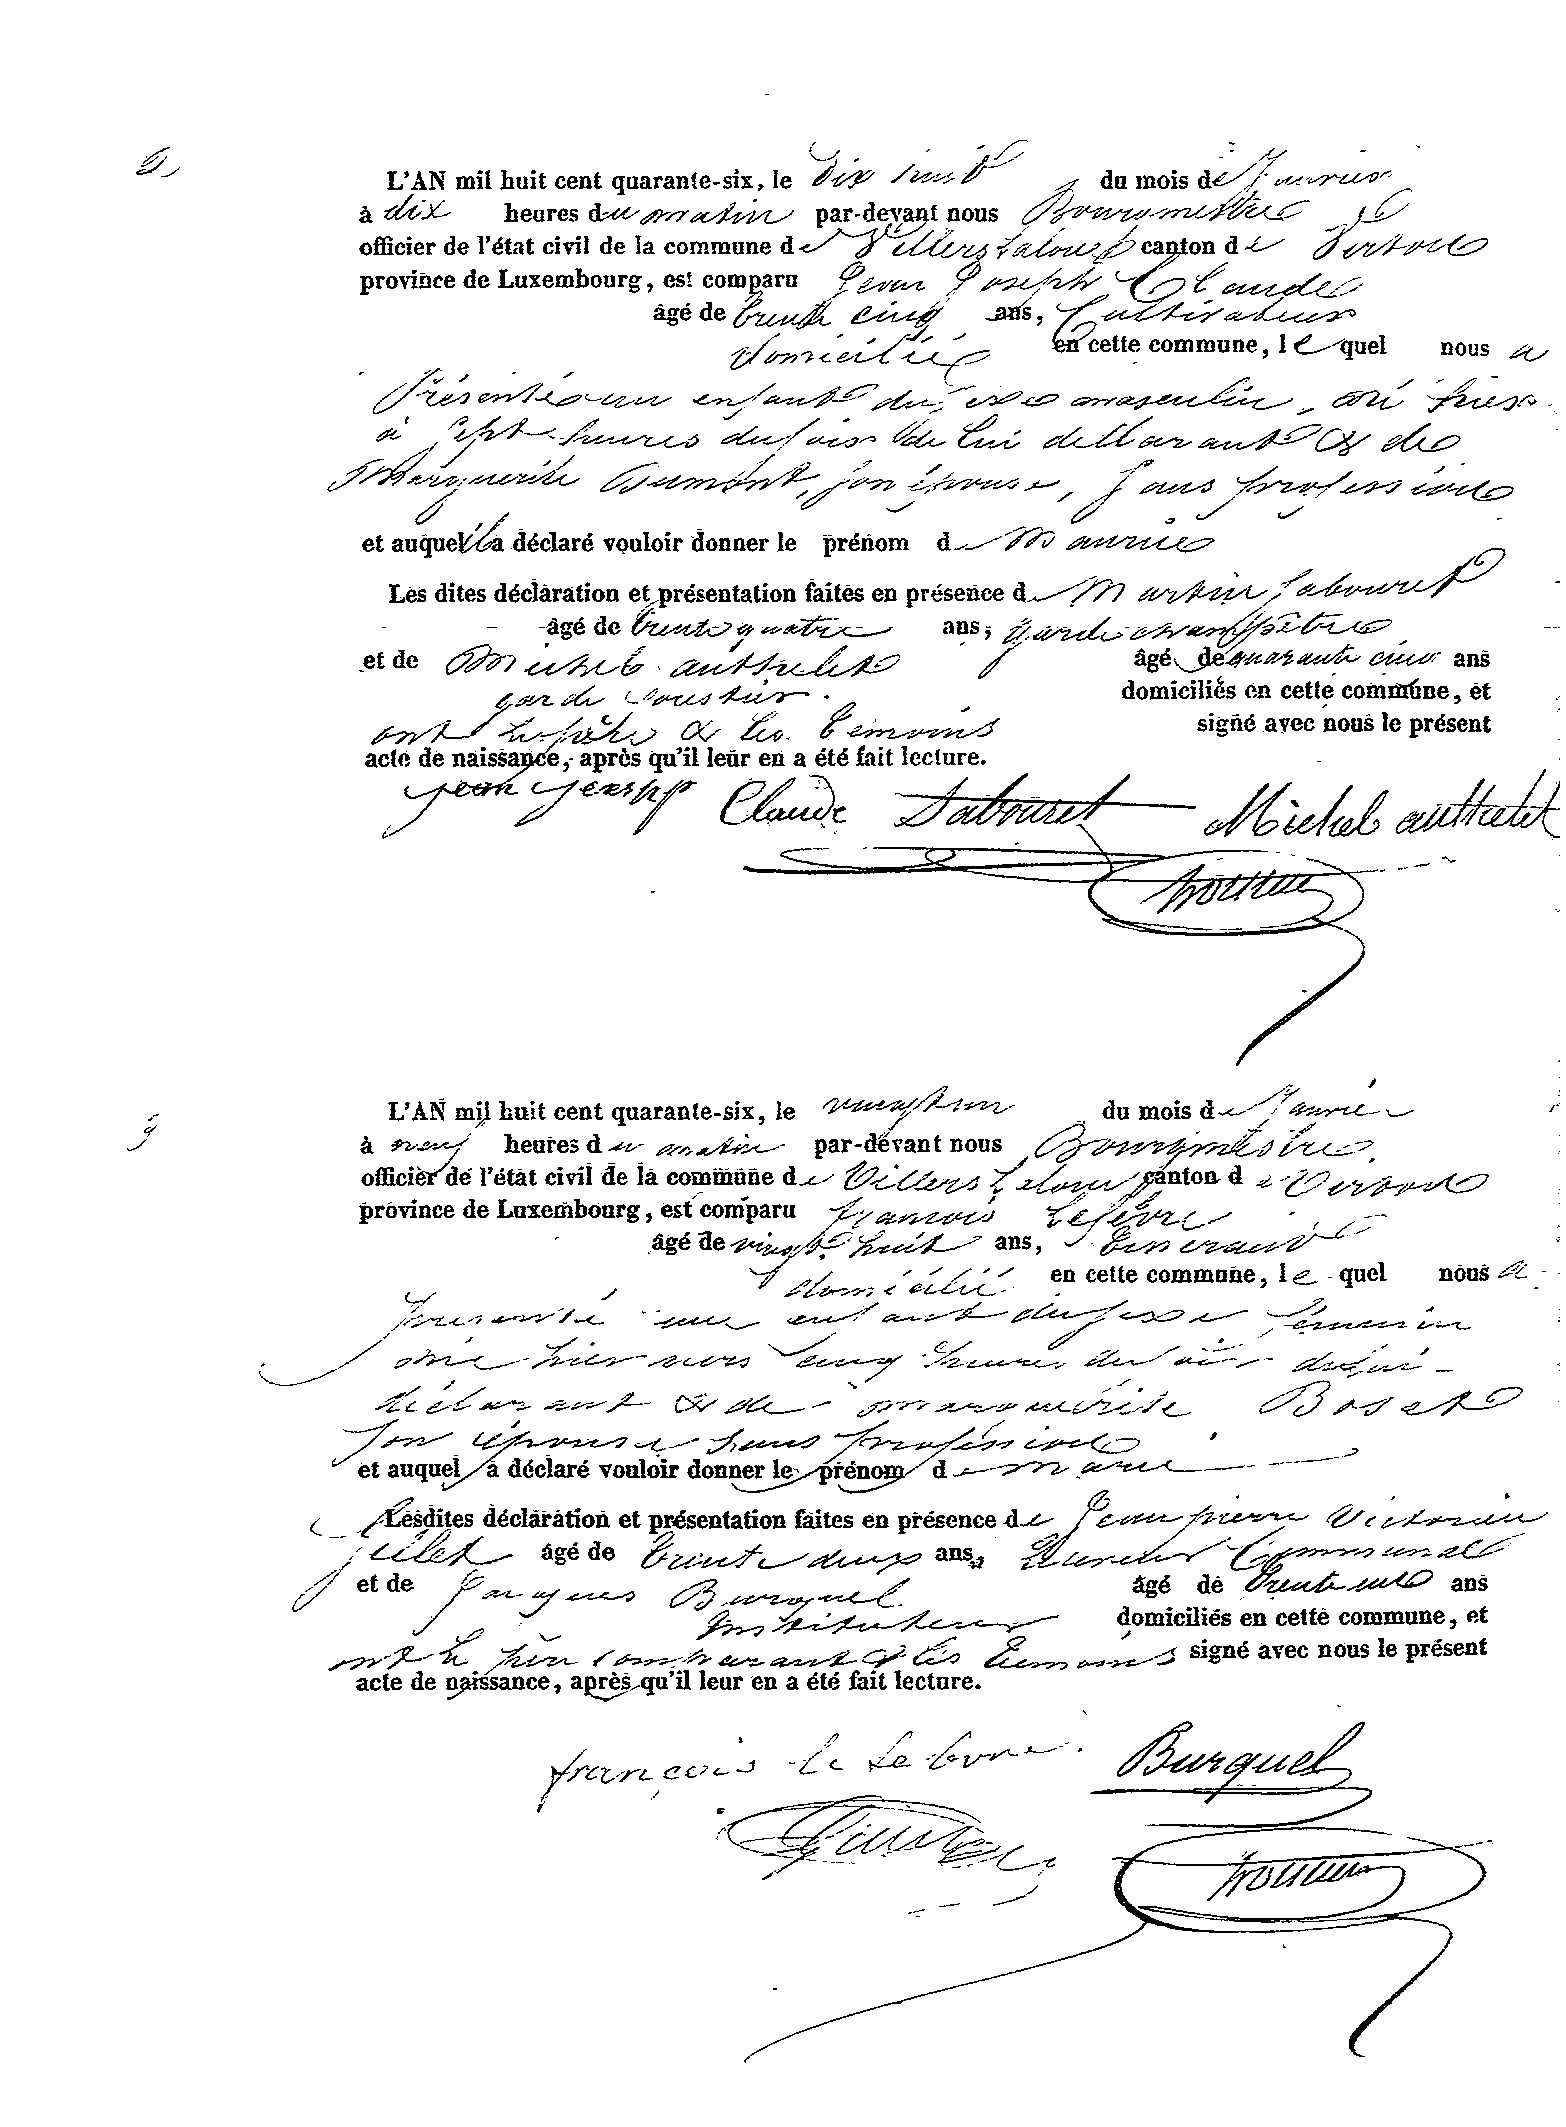 L'AN mil huit cent quarante-six, le dix huit du mois de Janvier
à dix heures du matin par-devant nous Bourgmestre
officier de l'état civil de la commune de Villers Laloue canton de Virton
province de Luxembourg, est comparu Jean Joseph Claude
âgé de trente cinq ans, Cultivateur
domicilié en cette commune, le quel nous a
présenté un enfant du sexe masculin, né hier
à sept heures du soir de lui déclarant & de
Marguerite Dumont, son épouse, sans profession
et auquel il a déclaré vouloir donner le prénom de Maurice
Les dites déclaration et présentation faites en présence de Martin Labouret
âgé de trente quatre ans, garde champêtre
et de Michel authelet âgé de quarante cinq ans
garde domiciliés en cette commune, et
ont le père & les témoins signé avec nous le présent
acte de naissance, après qu'il leur en a été fait lecture.
jean Claude Labouret Michel authelet
9
L'AN mil huit cent quarante-six, le vingt un du mois de Janvier
à neuf heures du matin par-devant nous Bourgmestre
officier de l'état civil de la commune de Villers Laloue canton de Virton
province de Luxembourg, est comparu françois Lefèvre
âgé de vingt huit ans, Tisserand
domicilié en cette commune, le quel nous a
présenté un enfant du sexe féminin
née hier vers cinq heures du soir de lui
déclarant & de marguerite Boset
son épouse sans profession
et auquel a déclaré vouloir donner le prénom de marie
Lesdites déclaration et présentation faites en présence de Jean pierre Victorien
gillet âgé de trente deux ans, Communal
et de Jacques Burquel âgé de trente un ans
Instituteur domiciliés en cette commune, et
ont le père comparant & les témoins signé avec nous le présent
acte de naissance, après qu'il leur en a été fait lecture.
françois Burquel